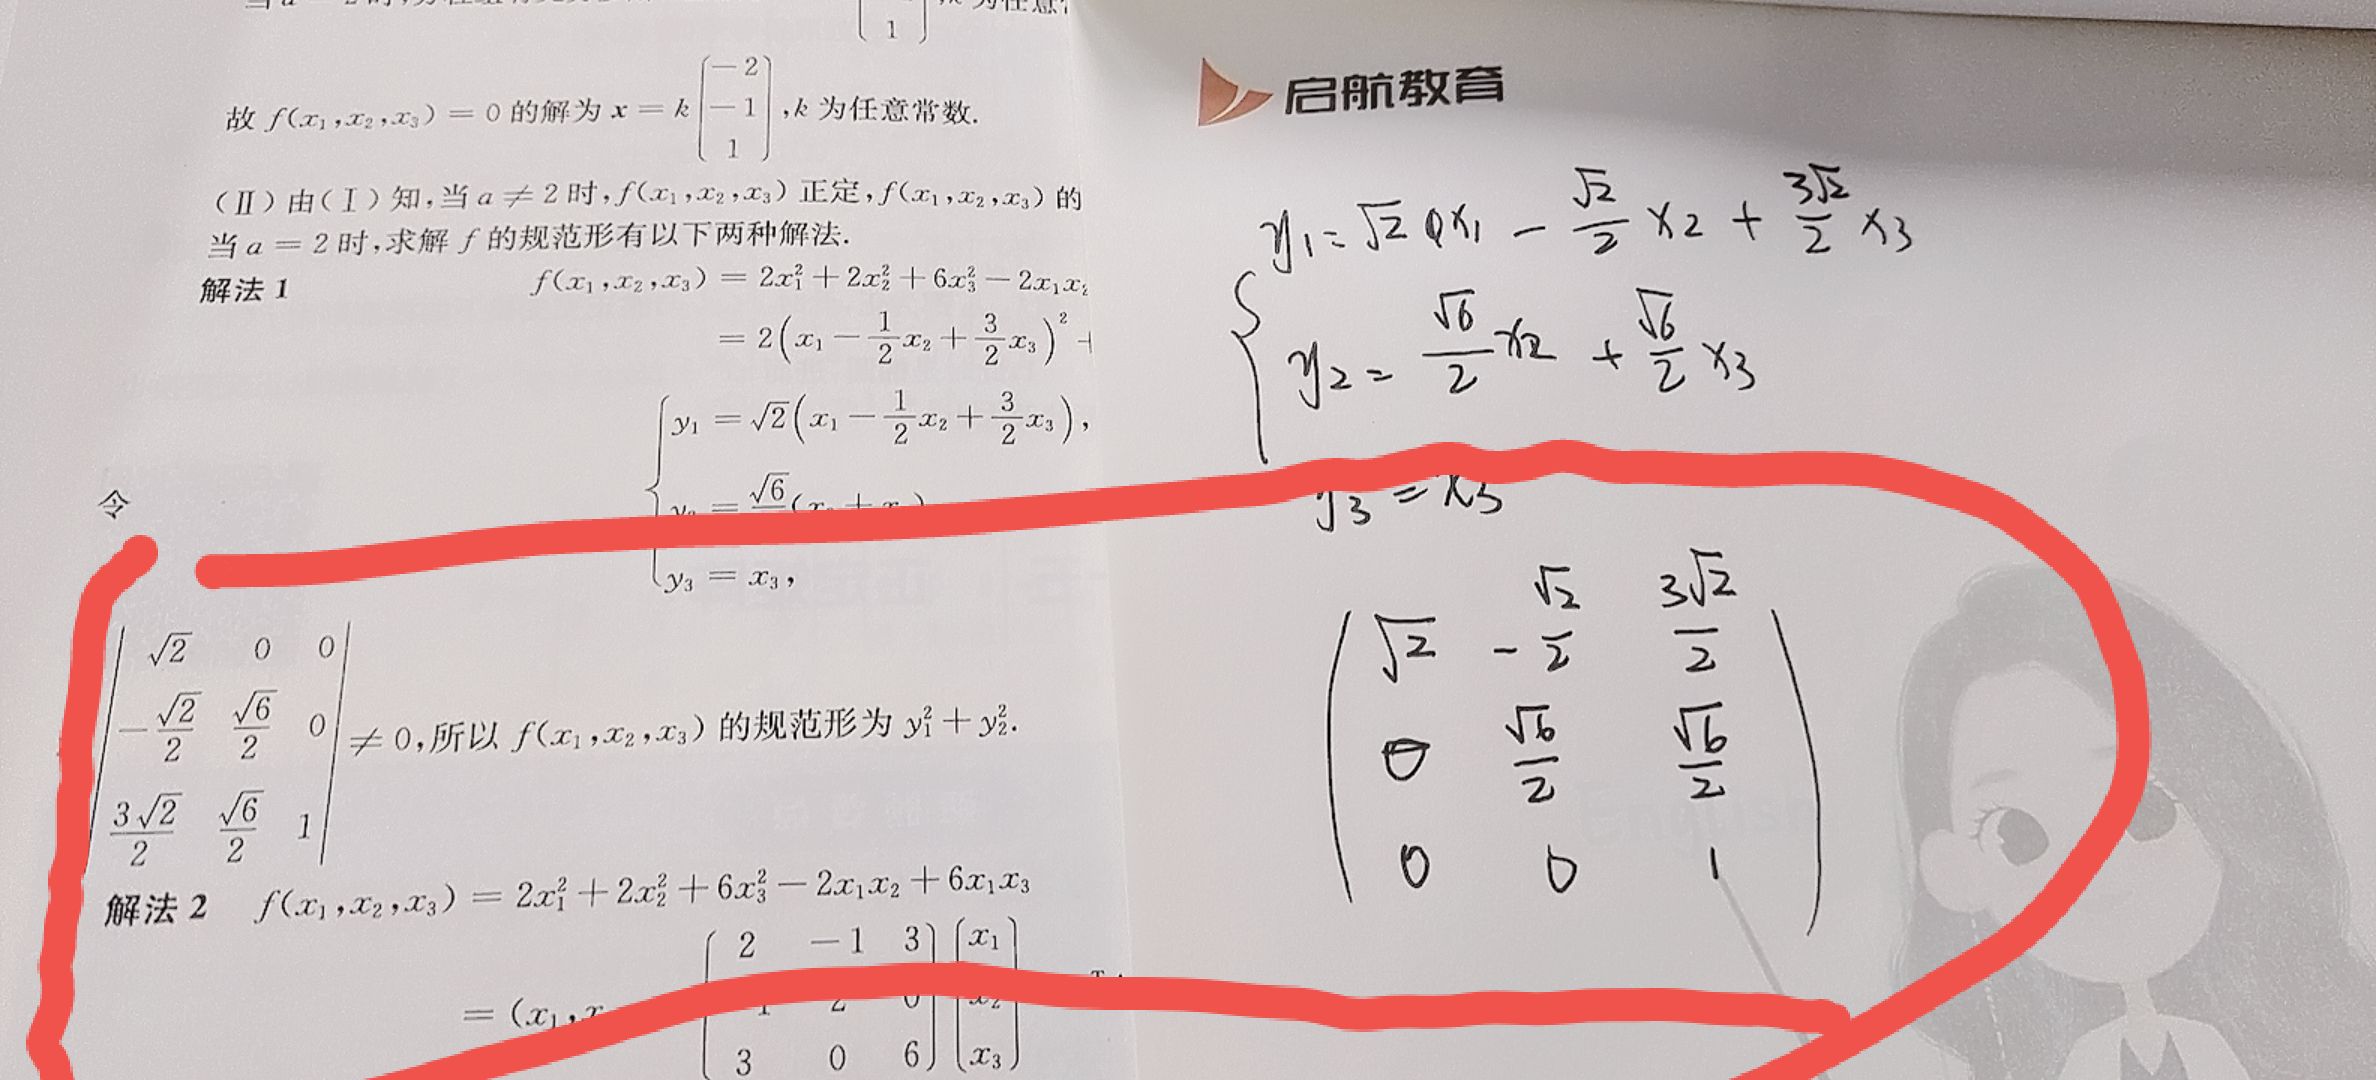 1
故 f(x₁,x₂,x₃) = 0 的解为 x = k [−2; −1; 1], k 为任意常数.
(Ⅱ) 由(Ⅰ)知,当 a ≠ 2 时,f(x₁,x₂,x₃) 正定,f(x₁,x₂,x₃) 的
当 a = 2 时,求解 f 的规范形有以下两种解法.
解法 1 f(x₁,x₂,x₃) = 2x₁² + 2x₂² + 6x₃² − 2x₁x₂
= 2(x₁ − 1/2 x₂ + 3/2 x₃)² +
y₁ = √2(x₁ − 1/2 x₂ + 3/2 x₃),
令
y₃ = x₃,
| √2 0 0 |
| −√2/2 √6/2 0 | ≠ 0,所以 f(x₁,x₂,x₃) 的规范形为 y₁² + y₂².
| 3√2/2 √6/2 1 |
解法 2 f(x₁,x₂,x₃) = 2x₁² + 2x₂² + 6x₃² − 2x₁x₂ + 6x₁x₃
2 −1 3 x₁
= (x₁,x
3 0 6 x₃
启航教育
y₁ = √2 x₁ − √2/2 x₂ + 3√2/2 x₃
y₂ = √6/2 x₂ + √6/2 x₃
y₃ = x₃
√2 −√2/2 3√2/2
0 √6/2 √6/2
0 0 1